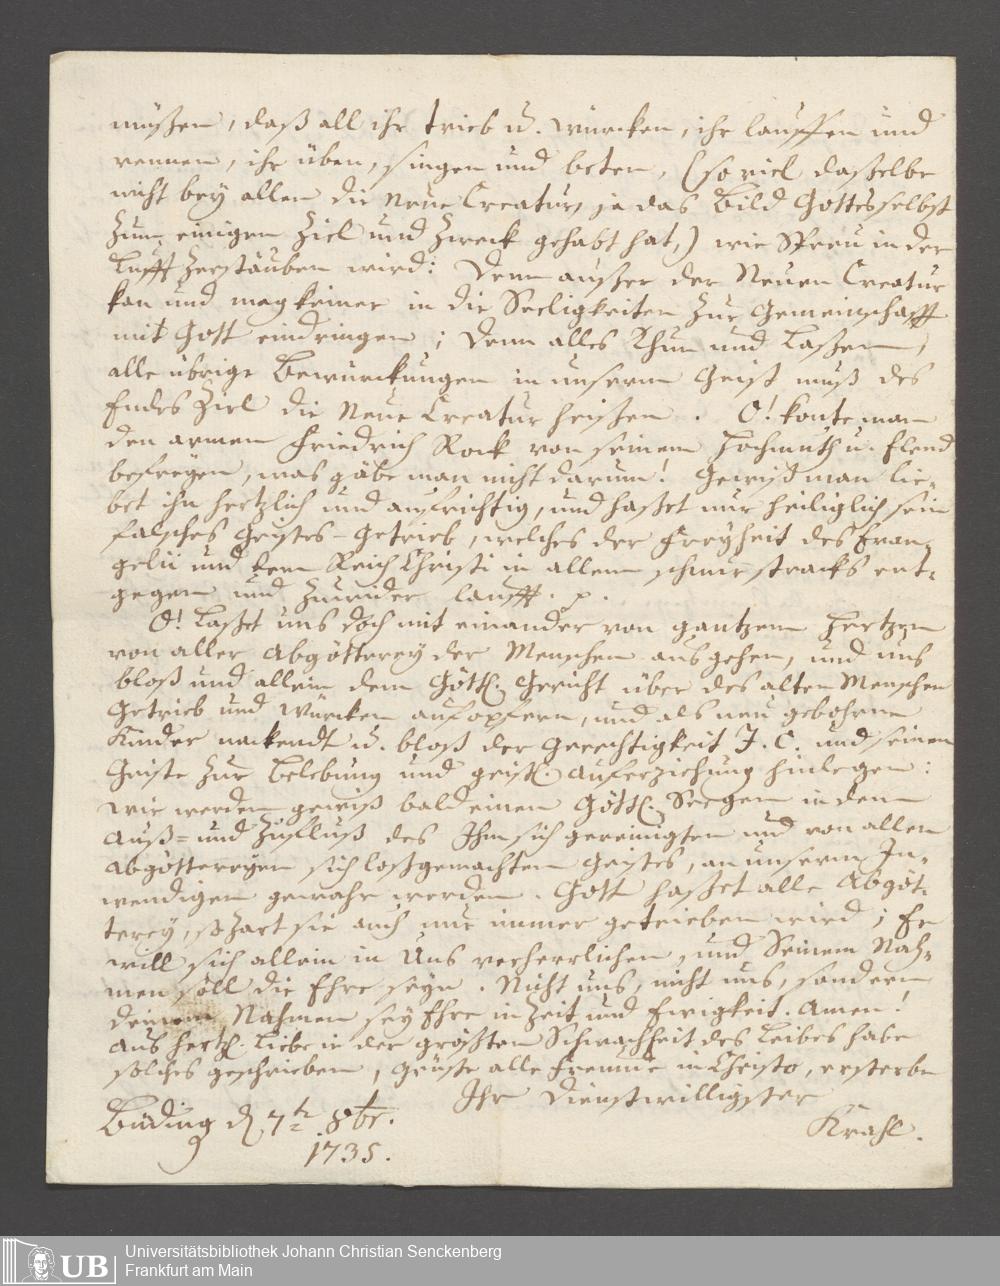 müßen, daß all ihr trieb u. würcken, ihr lauffen und
rennen, ihr üben, singen und beten, (so viel daßelbe
nicht bey allen die Neue Creatur, ja das Bild Gottes selbst
zum einigen Ziel und Zweck gehabt hat,) wie Spreu in der
Lufft zerstäuben wird: Denn außer der Neuen Creatur
kan und mag keiner in die Seeligkeiten zur Gemeinschafft
mit Gott eindringen; Denn alles Thun und Laßen,
alle übrige Bewürckungen in unserm Geist muß des
Endes Ziel die Neue Creatur heißen. O! konte man
den armen Friedrich Rock von seinem Hochmuth u. Elend
befreyen, was gäbe man nicht darum! Gewiß man lie-
bet ihn hertzlich und aufrichtig, und haßet nur heiliglich sein
falsches Geistes-Getrieb, welches der Freyheit des Evan-
gelii und dem Reich Christi in allem schnur stracks ent-
gegen und zuwider laufft. p.
O! Laßet uns doch mit einander von gantzem Hertzen
von aller Abgötterey der Menschen ausgehen, und uns
bloß und allein dem Göttl. Gericht über des alten Menschen
Getrieb und Würcken aufopfern, und als neu gebohrne
Kinder nackendt u. bloß der Gerechtigkeit J. C. und seinem
Geiste zur Belebung und geistl. Auferziehung hinlegen:
wir werden gewiß bald einen Göttl. Seegen in dem
Auß- und Zufluß des Ihm sich gereinigten und von allen
Abgöttereyen sich loßgemachten Geistes, an unserm In-
wendigen gewahr werden. Gott haßet alle Abgöt-
terey, so zart sie auch nur immer getrieben wird; Er
will sich allein in Uns verherrlichen, und Seinem Nah-
men soll die Ehre seyn. Nicht uns, nicht uns, sondern
deinem Nahmen sey Ehre in Zeit und Ewigkeit. Amen!
Aus hertzl. Liebe in der größten Schwachheit des Leibes habe
solches geschrieben, Grüste alle Freunde in Christo, ersterbe
Ihr Dienstwilligster
Büding d. 7t. 8br. Krahl.
1735.
UB Universitätsbibliothek Johann Christian Senckenberg
Frankfurt am Main